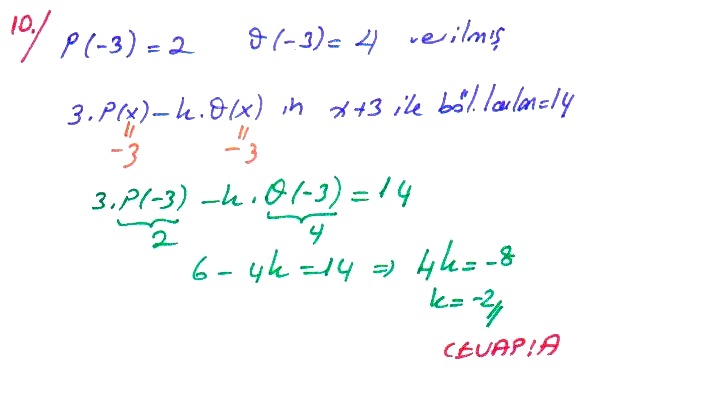 10./ P(-3) = 2 Q(-3) = 4 verilmiş
3.P(x) - k.Q(x) in x+3 ile böl. kalan = 14
= =
-3 -3
3.P(-3) - k.Q(-3) = 14
2 4
6 - 4k = 14 ⇒ 4k = -8
k = -2//
CEVAP: A